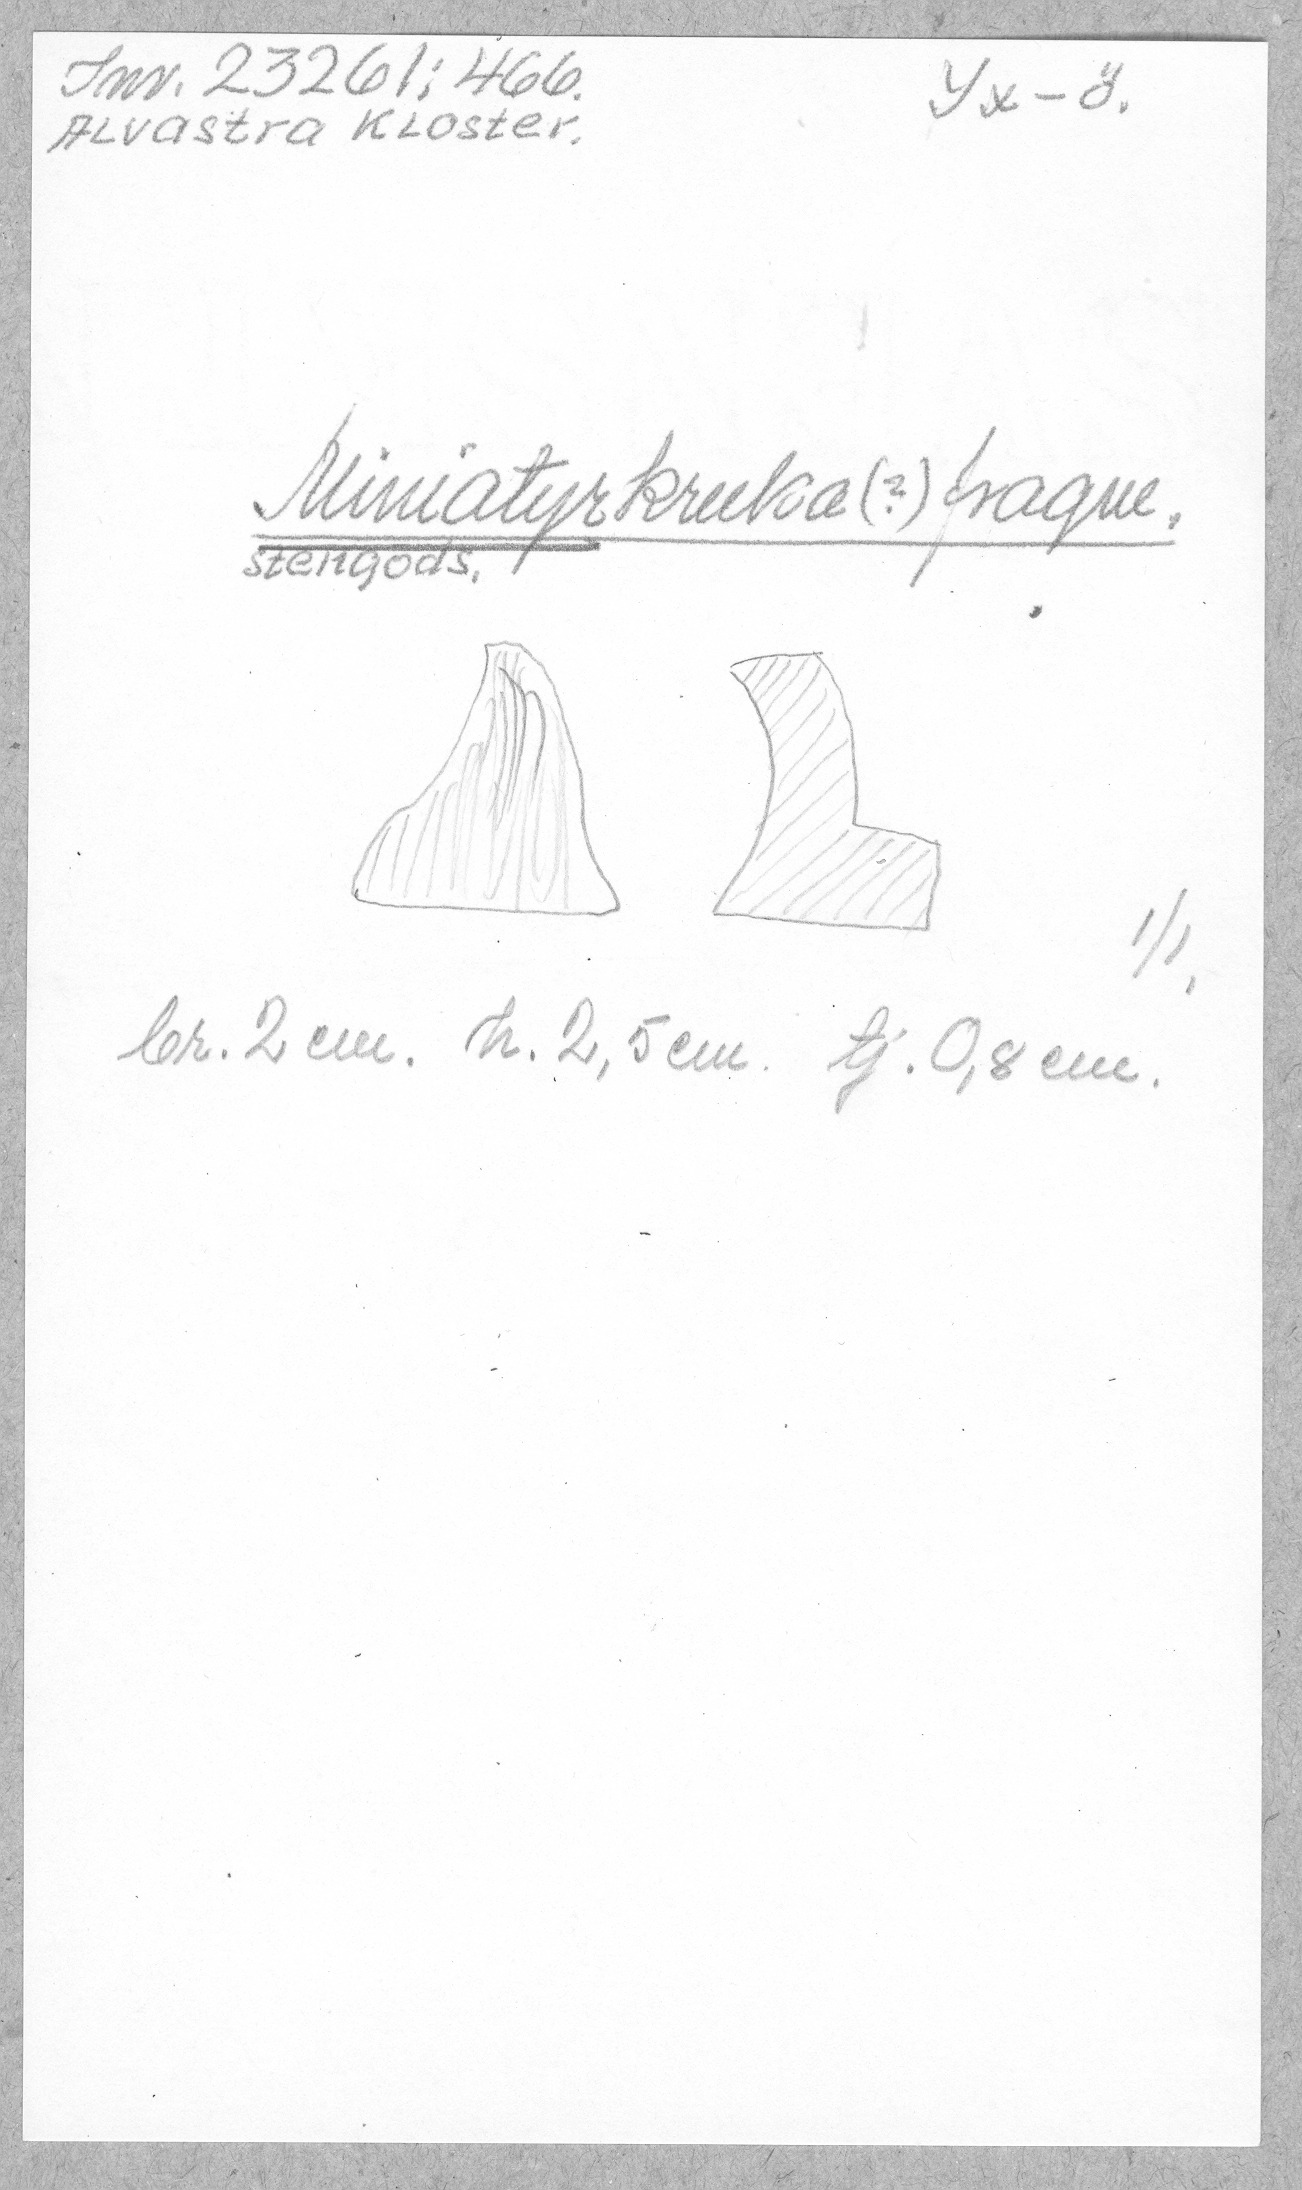 Inv. 23261:466.
Yx-ö.
Alvastra Kloster.
Miniatyrkruka(?) fragm.
stengods.
1/1.
br. 2 cm. h. 2,5 cm. tj. 0,8 cm.